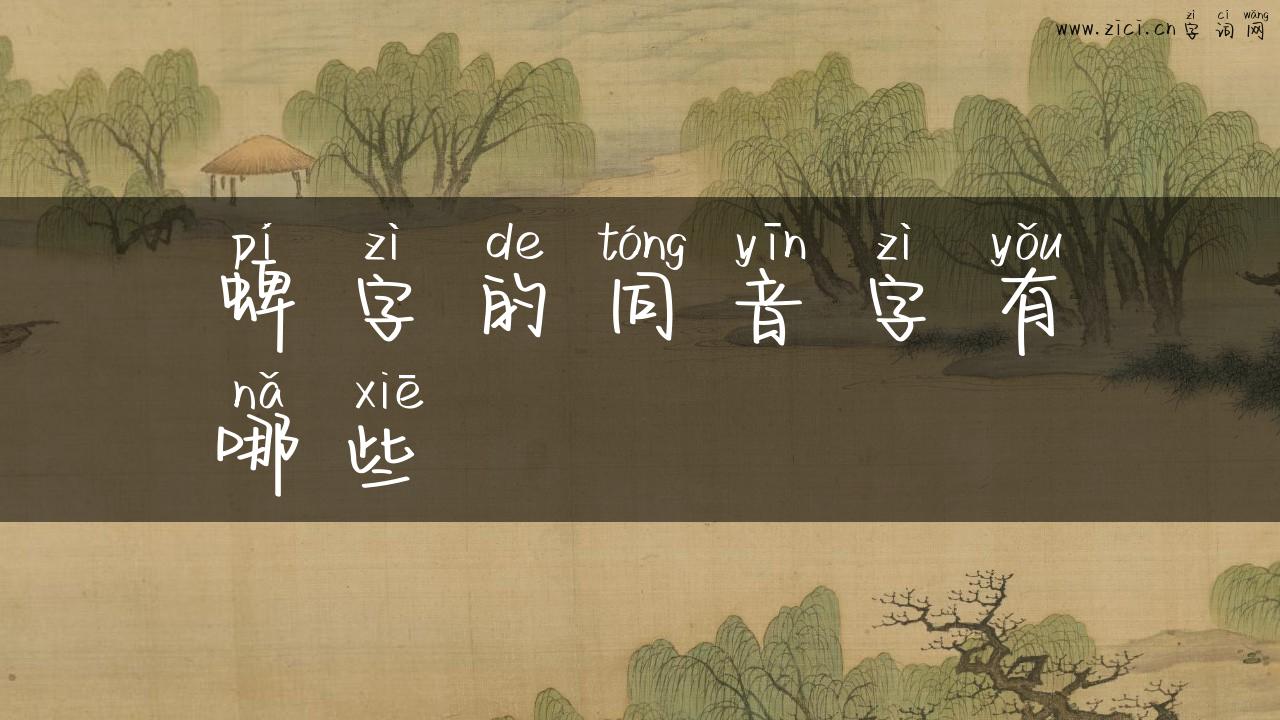 zì cí wǎng
www.zici.cn字词网
pí zì de tóng yīn zì yǒu
蜱字的同音字有
nǎ xiē
哪些